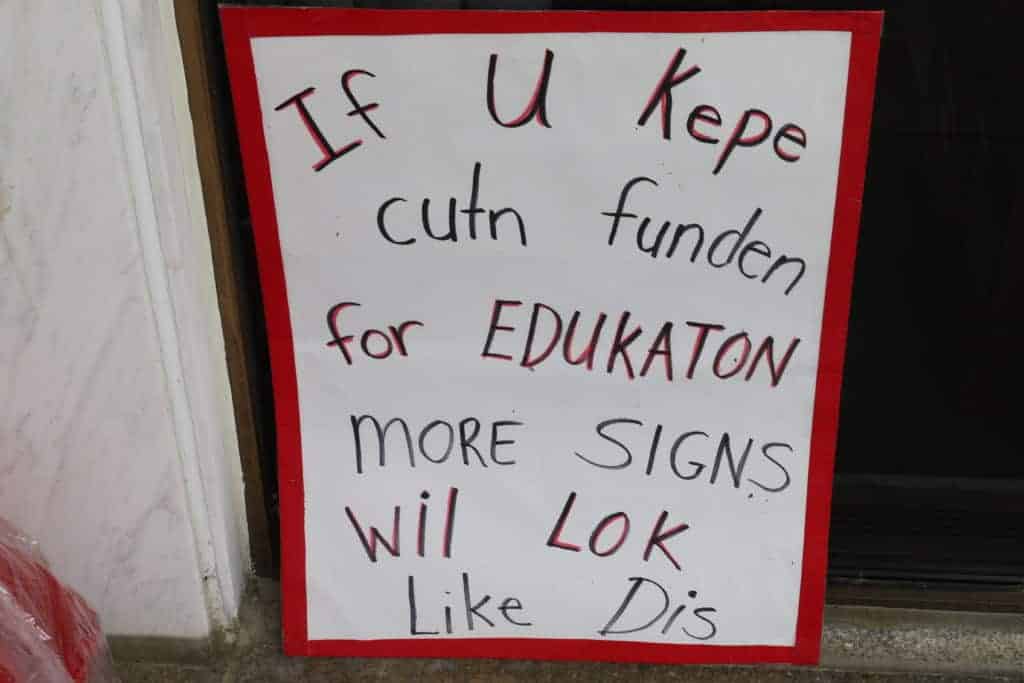 If U Kepe
cutn funden
for EDUKATON
MORE SIGNS
wil LOK
Like Dis